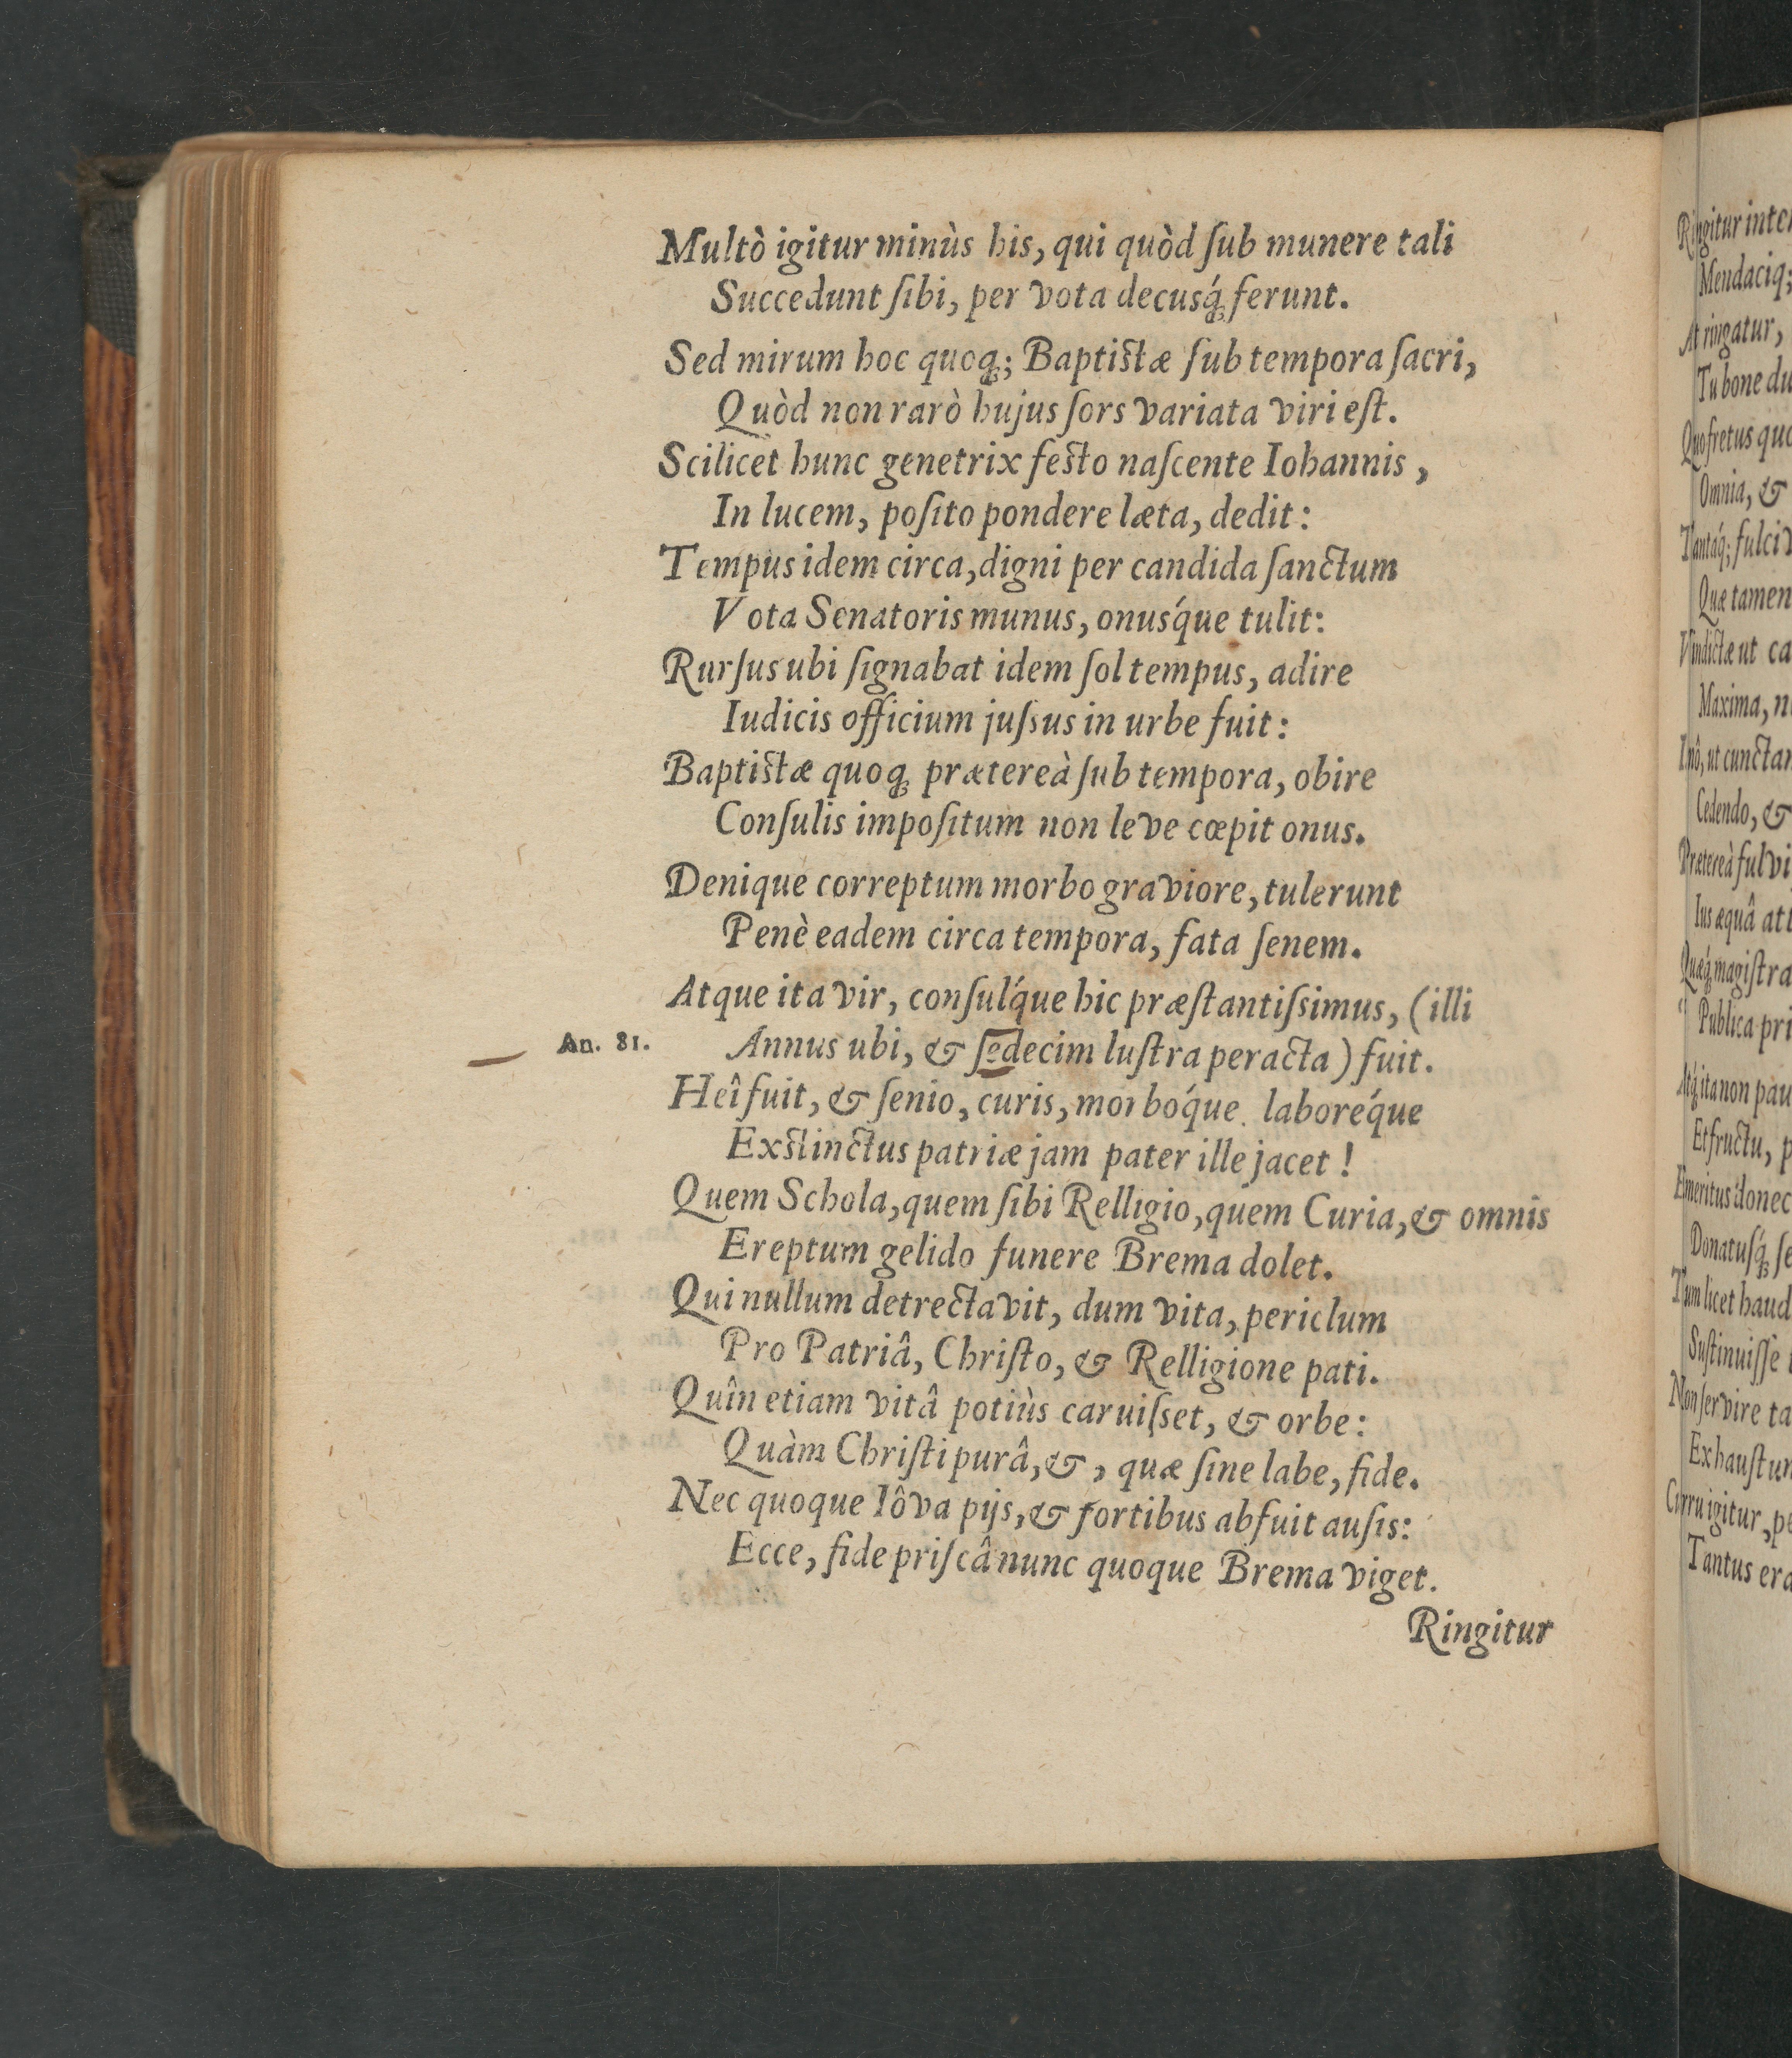 Multò igitur minùs his, qui quòd ſub munere tali
Succedunt ſibi, per vota decusq́; ferunt.
Sed mirum hoc quoq;; Baptiſtæ ſub tempora ſacri,
Quòd non rarò hujus ſors variata viri eſt.
Scilicet hunc genetrix feſto naſcente Iohannis,
In lucem, poſito pondere læta, dedit:
Tempus idem circa, digni per candida ſanctum
Vota Senatoris munus, onusq́ue tulit:
Rurſus ubi ſignabat idem ſol tempus, adire
Iudicis officium juſsus in urbe fuit:
Baptiſtæ quoq; prætereà ſub tempora, obire
Conſulis impoſitum non leve cœpit onus.
Denique correptum morbo graviore, tulerunt
Penè eadem circa tempora, fata ſenem.
Atque ita vir, conſulq́ue hic præſtantiſsimus, (illi
An. 81. Annus ubi, & ſedecim luſtra peracta) fuit.
Heî fuit, & ſenio, curis, morboq́ue. laboreq́ue
Exſtinctus patriæ jam pater ille jacet!
Quem Schola, quem ſibi Relligio, quem Curia, & omnis
Ereptum gelido funere Brema dolet.
Qui nullum detrectavit, dum vita, periclum
Pro Patriâ, Chriſto, & Relligione pati.
Quîn etiam vitâ potiùs caruiſset, & orbe:
Quàm Chriſti purâ, &, quæ ſine labe, fide.
Nec quoque Iôva pijs, & fortibus abfuit auſis:
Ecce, fide priſcâ nunc quoque Brema viget.
Ringitur
Ringitur
Mendaciq;
At ringatur,
Tu bone
Quo fretus
Omnia, &
Tantáq;;
Quæ tamen
Vindictæ ut
Maxima,
Cedendo, &
Prætereà
Ius æquâ
Publica
Et fructu,
Emeritus donec
Tum licet haud
Suſtinuiſſe
Non ſervire
Curru igitur,
Tantus